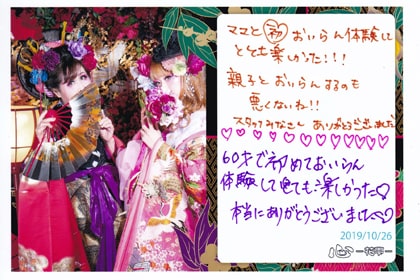 ママと初おいらん体験して
とても楽しかった!!!
親子でおいらんするのも
悪くないね!!
スタッフみなさん ありがとうございました
60才で初めておいらん
体験してとても楽しかった♡
本当にありがとうございました♡
2019/10/26